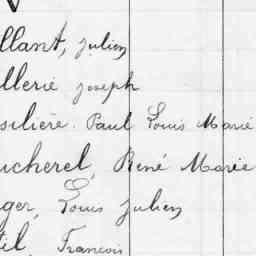 llant, Julien
llerie Joseph
silière. Paul Louis Marie
ucherel, René Marie
ger, Louis Julien
til, Francois